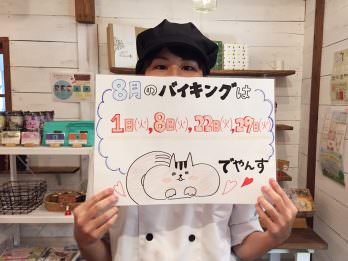 8月のバイキングは
1日(火),8日(火),22日(火),29日(火)
でやんす